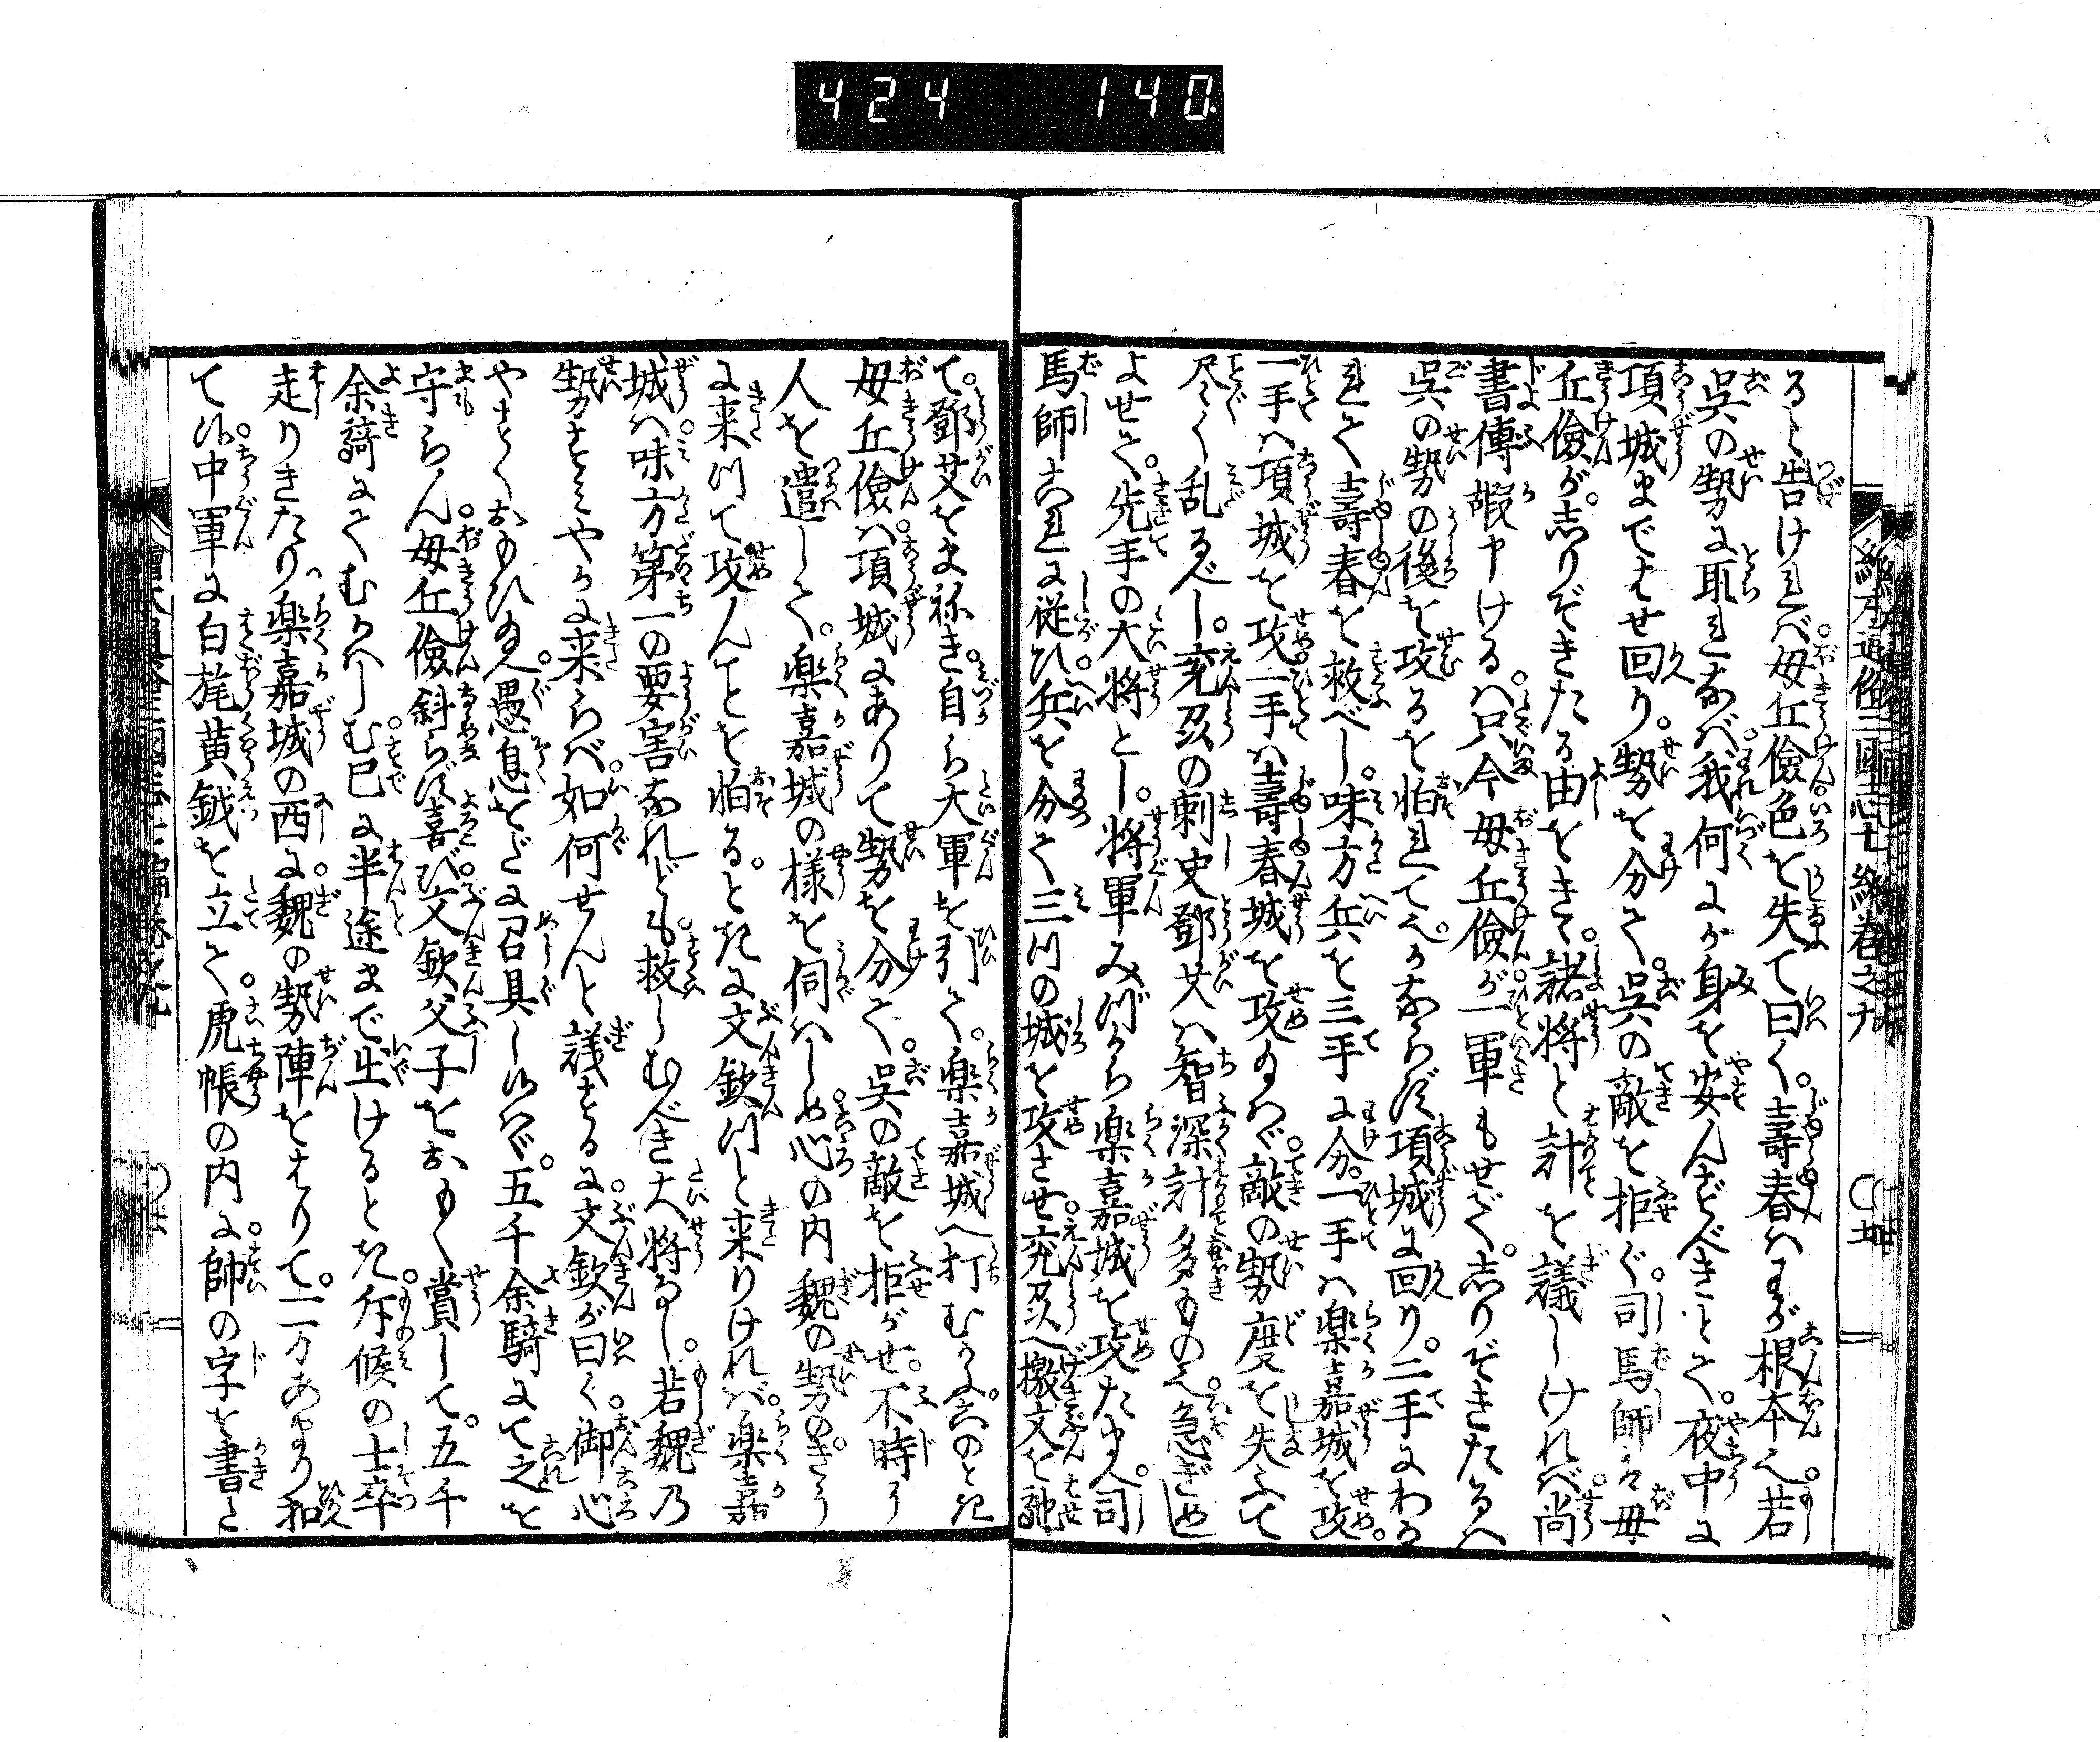 424 140
る〻告ければ毋丘儉色を失て曰く壽春はわが根本也若
呉の勢に取れなば我何にか身を安んずべきとて夜中に
項城まではせ回り勢を分て呉の敵を拒ぐ司馬師は毋
丘儉がしりぞきたる由をきて諸将と計を議しければ尚
書傅嘏申けるは只今毋丘儉が一軍もせずしりぞきたるハ
呉の勢の後を攻るを怕れてかならず項城に回り二手にわか
れて壽春を救べし味方兵を三手に分一手は楽嘉城を攻
一手は項城を攻一手は壽春城を攻めは敵の勢度を失ふて
尽く乱るべし兗州の刺史鄧艾は智深計多ものなり急ぎめし
よせて先手の大将とし将軍みづから楽嘉城を攻たまへ司
馬師これに従ひ兵を分て三つの城を攻させ兗州へ檄文を馳
て鄧艾をまねき自ら大軍を引て楽嘉城へ打むかふこのとき
毋丘儉は項城にありて勢を分て呉の敵を拒がせ不時に
人を遣して楽嘉城の様を伺はしめ心の内魏の勢のきう
に来つて攻んことを怕るときに文欽つと来りければ楽嘉
城は味方第一の要害なれども救しむべき大将なし若魏乃
勢すみやかに来らば如何せんと議するに文欽が曰く御心
やすくおもひ給へ愚息をだに召具し候はゞ五千余騎にて之を
守らん毋丘儉斜らず喜び文欽父子をおもく賞して五千
余騎にてむかはしむ已に半途まで出けるとき斥候の士卒
走りきたり楽嘉城の西に魏の勢陣をはりて一万あまり和へ
て候中軍に白旄黄鉞を立て虎帳の内に帥の字を書た